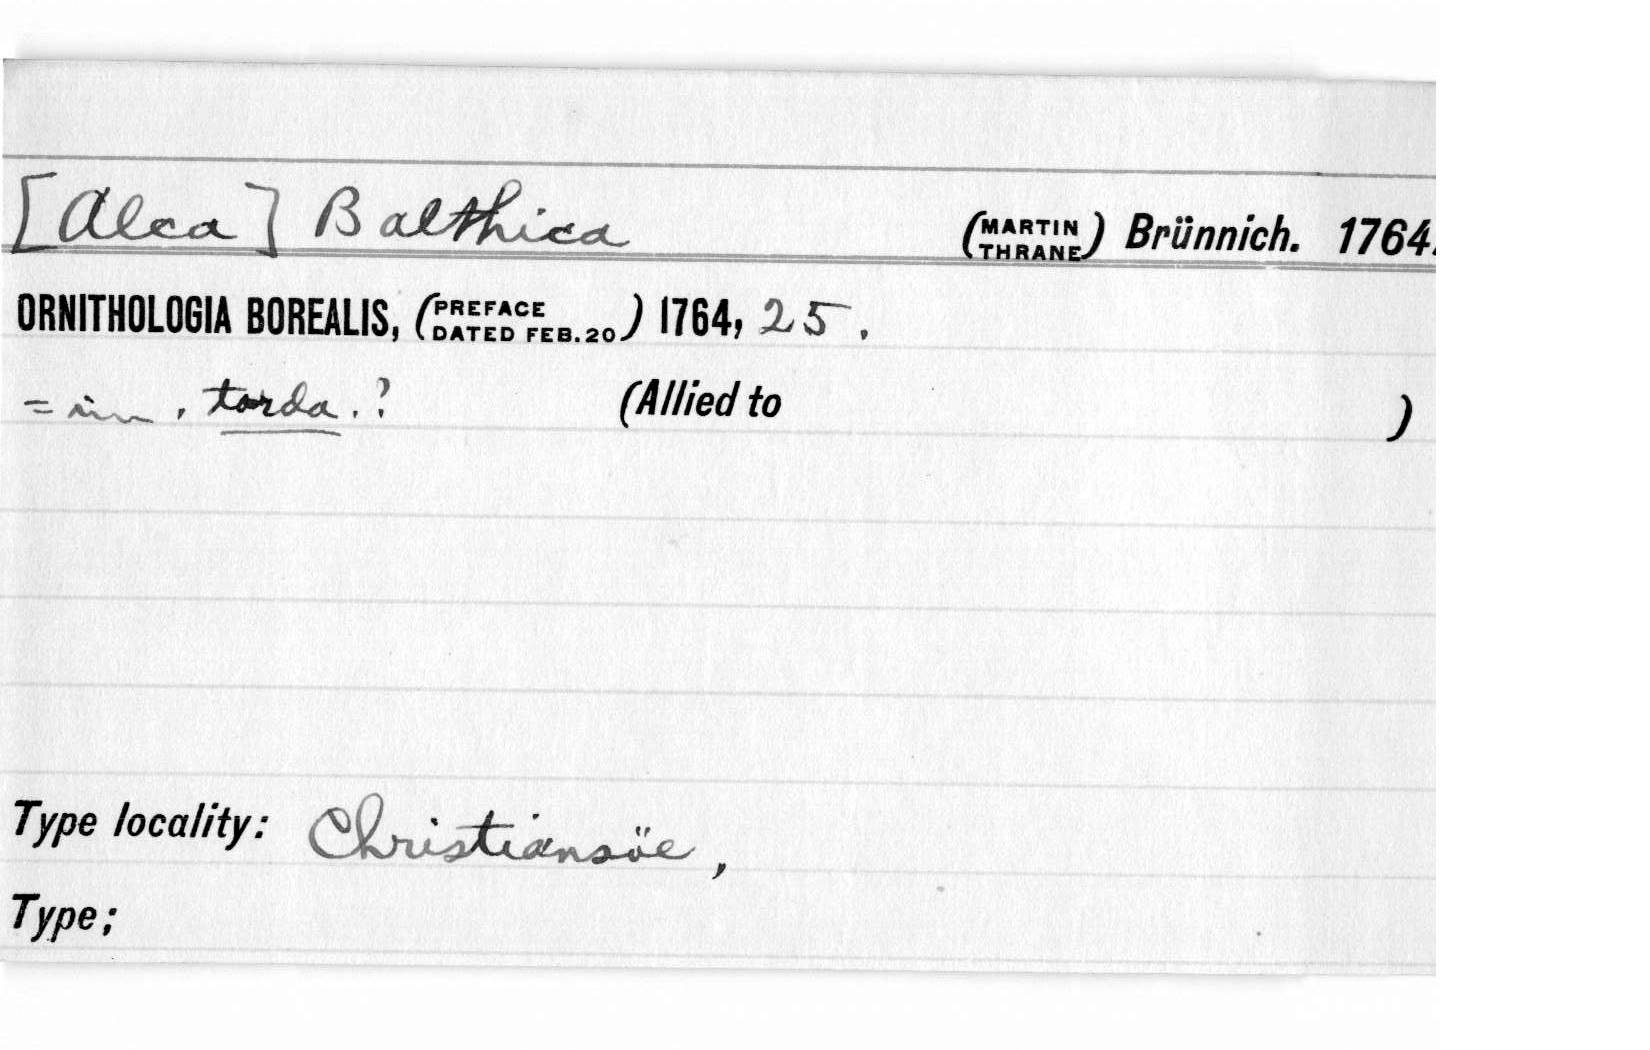 [Alca] Balthica (MARTIN THRANE) Brünnich. 1764.
ORNITHOLOGIA BOREALIS, (PREFACE DATED FEB. 20) 1764, 25.
= im. torda.? (Allied to )
Type locality: Christiansöe,
Type;